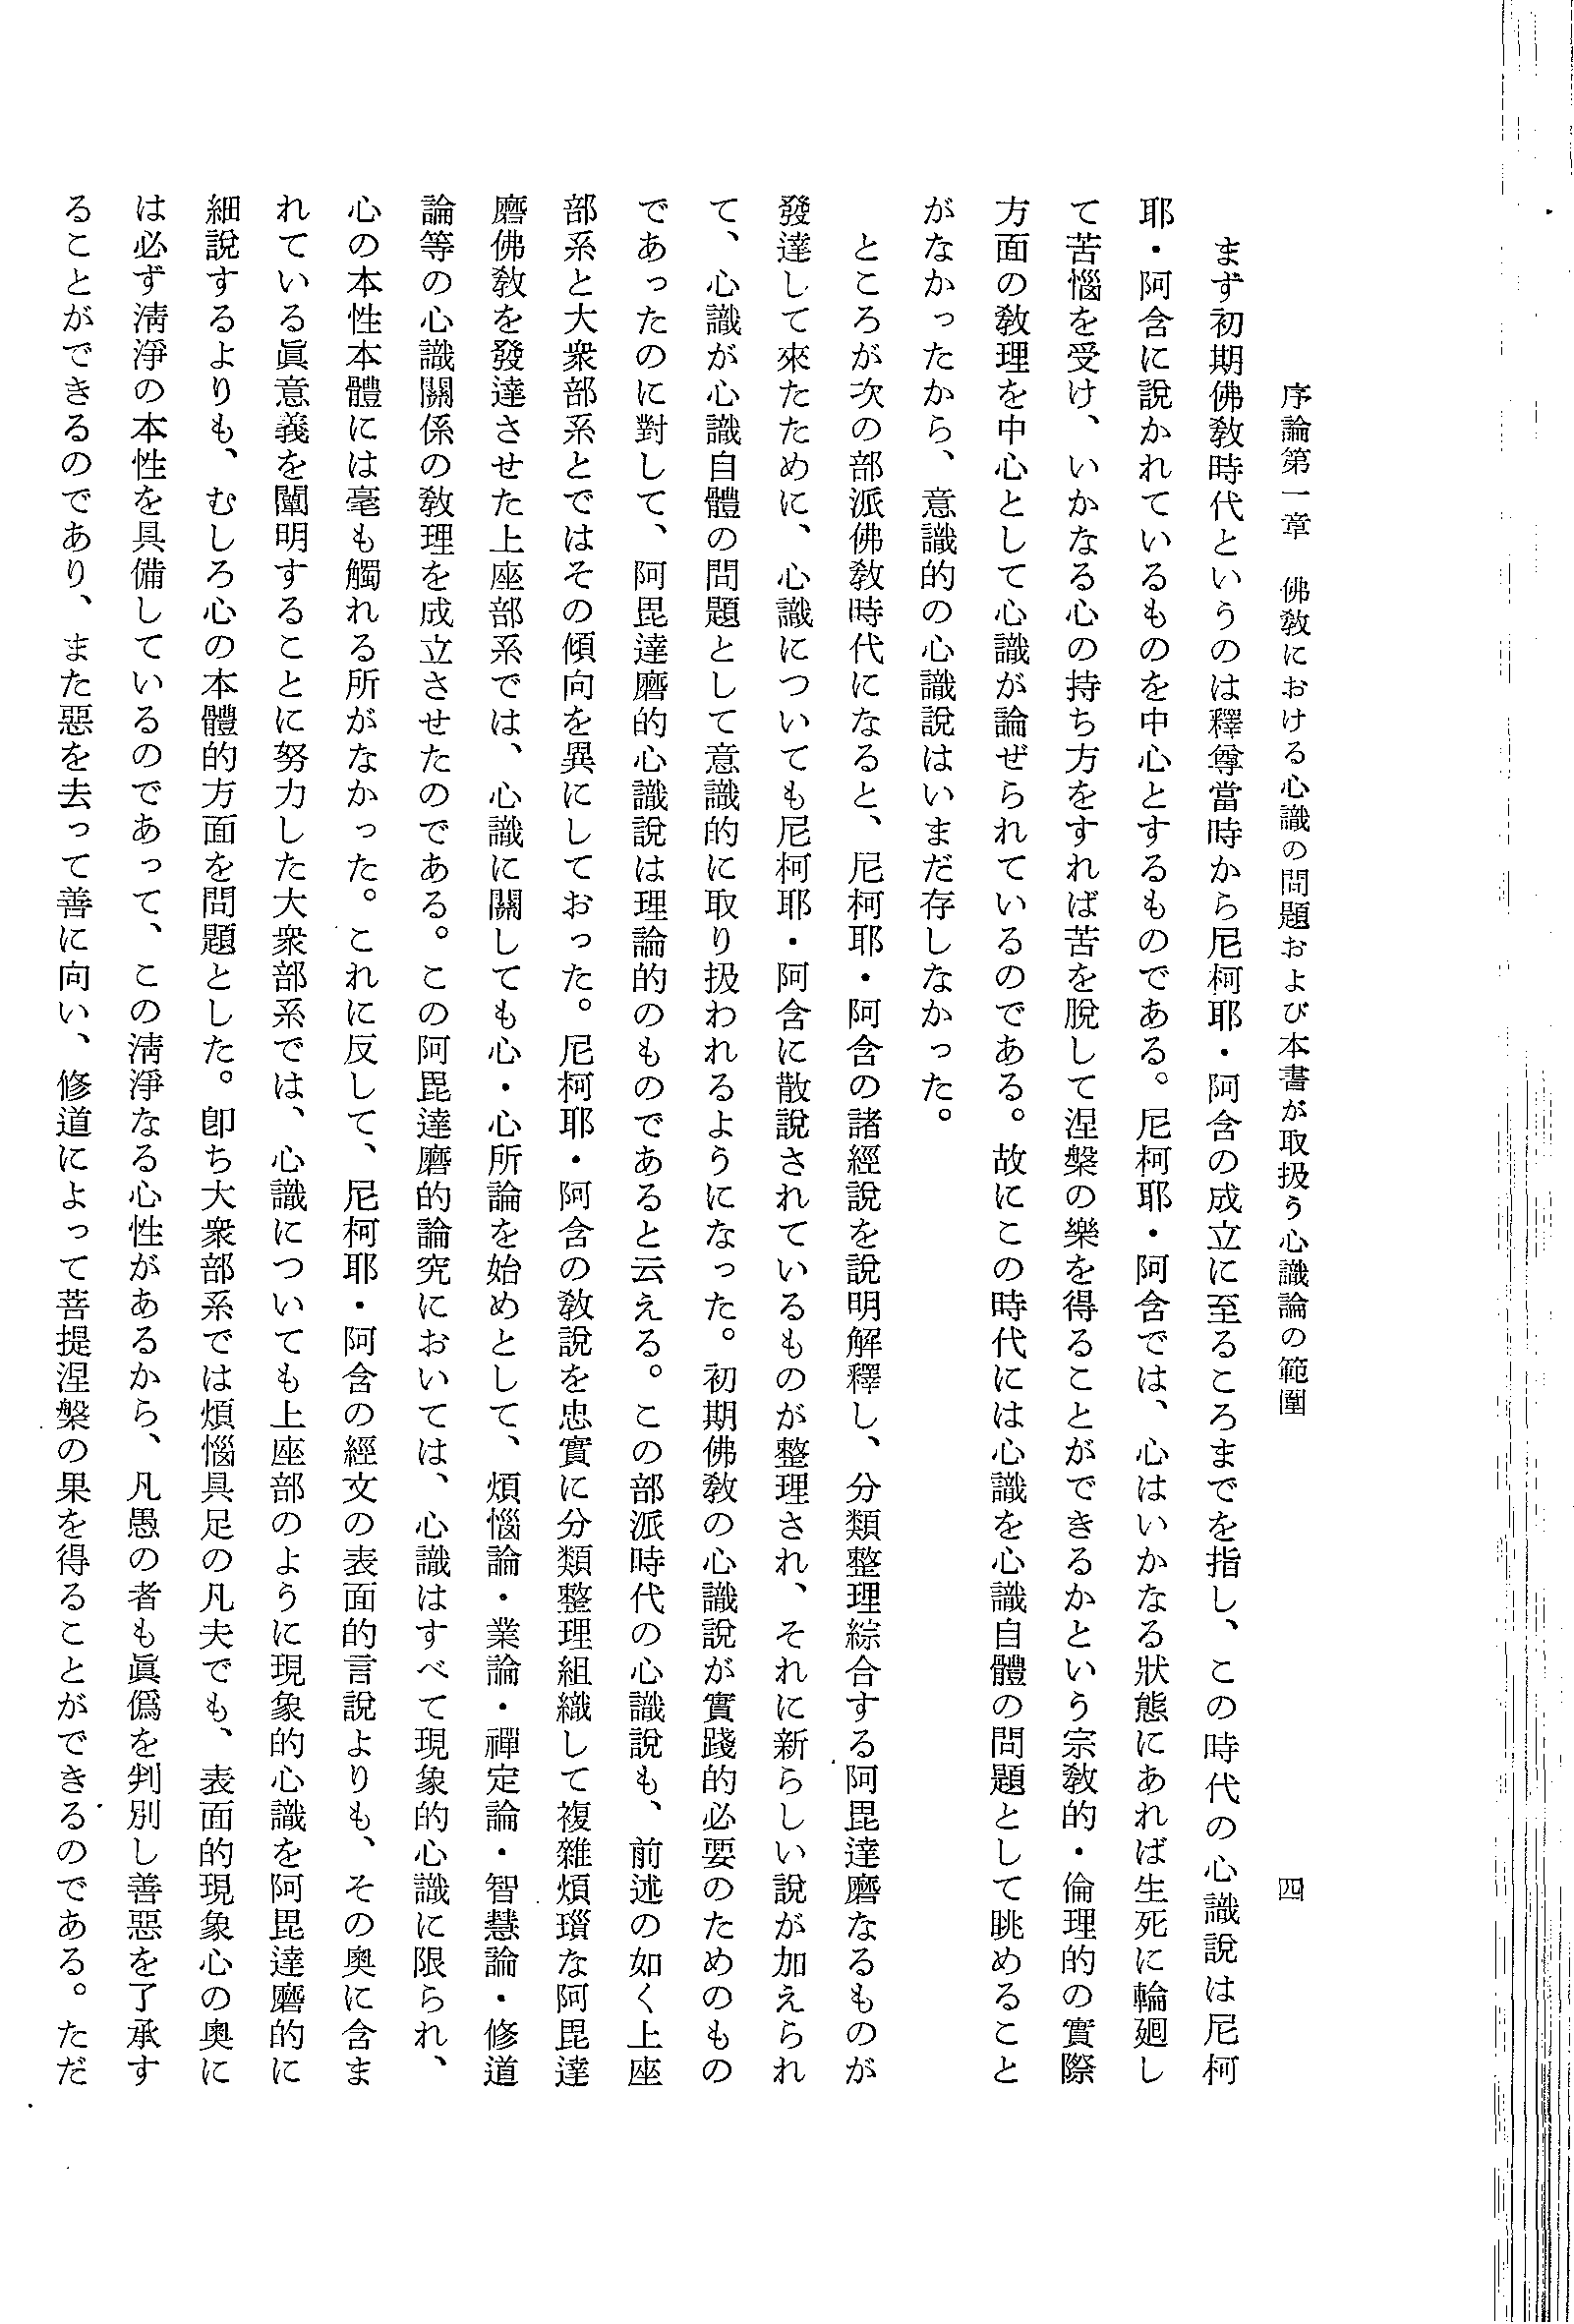 序論第一章　佛教における心識の問題および本書が取扱う心識論の範圍　四
まず初期佛教時代というのは釋尊當時から尼柯耶・阿含の成立に至るころまでを指し、この時代の心識說は尼柯
耶・阿含に說かれているものを中心とするものである。尼柯耶・阿含では、心はいかなる狀態にあれば生死に輪廻し
て苦惱を受け、いかなる心の持ち方をすれば苦を脫して涅槃の樂を得ることができるかという宗教的・倫理的の實際
方面の敎理を中心として心識が論ぜられているのである。故にこの時代には心識を心識自體の問題として眺めること
がなかったから、意識的の心識說はいまだ存しなかった。
ところが次の部派佛教時代になると、尼柯耶・阿含の諸經說を說明解釋し、分類整理綜合する阿毘達磨なるものが
發達して來たために、心識についても尼柯耶・阿含に散說されているものが整理され、それに新らしい說が加えられ
て、心識が心識自體の問題として意識的に取り扱われるようになった。初期佛敎の心識說が實踐的必要のためのもの
であったのに對して、阿毘達磨的心識說は理論的のものであると云える。この部派時代の心識說も、前述の如く上座
部系と大衆部系とではその傾向を異にしておった。尼柯耶・阿含の敎說を忠實に分類整理組織して複雜煩瑣な阿毘達
磨佛敎を發達させた上座部系では、心識に關しても心・心所論を始めとして、煩惱論・業論・禪定論・智慧論・修道
論等の心識關係の敎理を成立させたのである。この阿毘達磨的論究においては、心識はすべて現象的心識に限られ、
心の本性本體には毫も觸れる所がなかった。これに反して、尼柯耶・阿含の經文の表面的言說よりも、その奧に含ま
れている眞意義を闡明することに努力した大衆部系では、心識についても上座部のように現象的心識を阿毘達磨的に
細說するよりも、むしろ心の本體的方面を問題とした。卽ち大衆部系では煩惱具足の凡夫でも、表面的現象心の奧に
は必ず淸淨の本性を具備しているのであって、この淸淨なる心性があるから、凡愚の者も眞僞を判別し善惡を了承す
ることができるのであり、また惡を去って善に向い、修道によって菩提涅槃の果を得ることができるのである。ただ